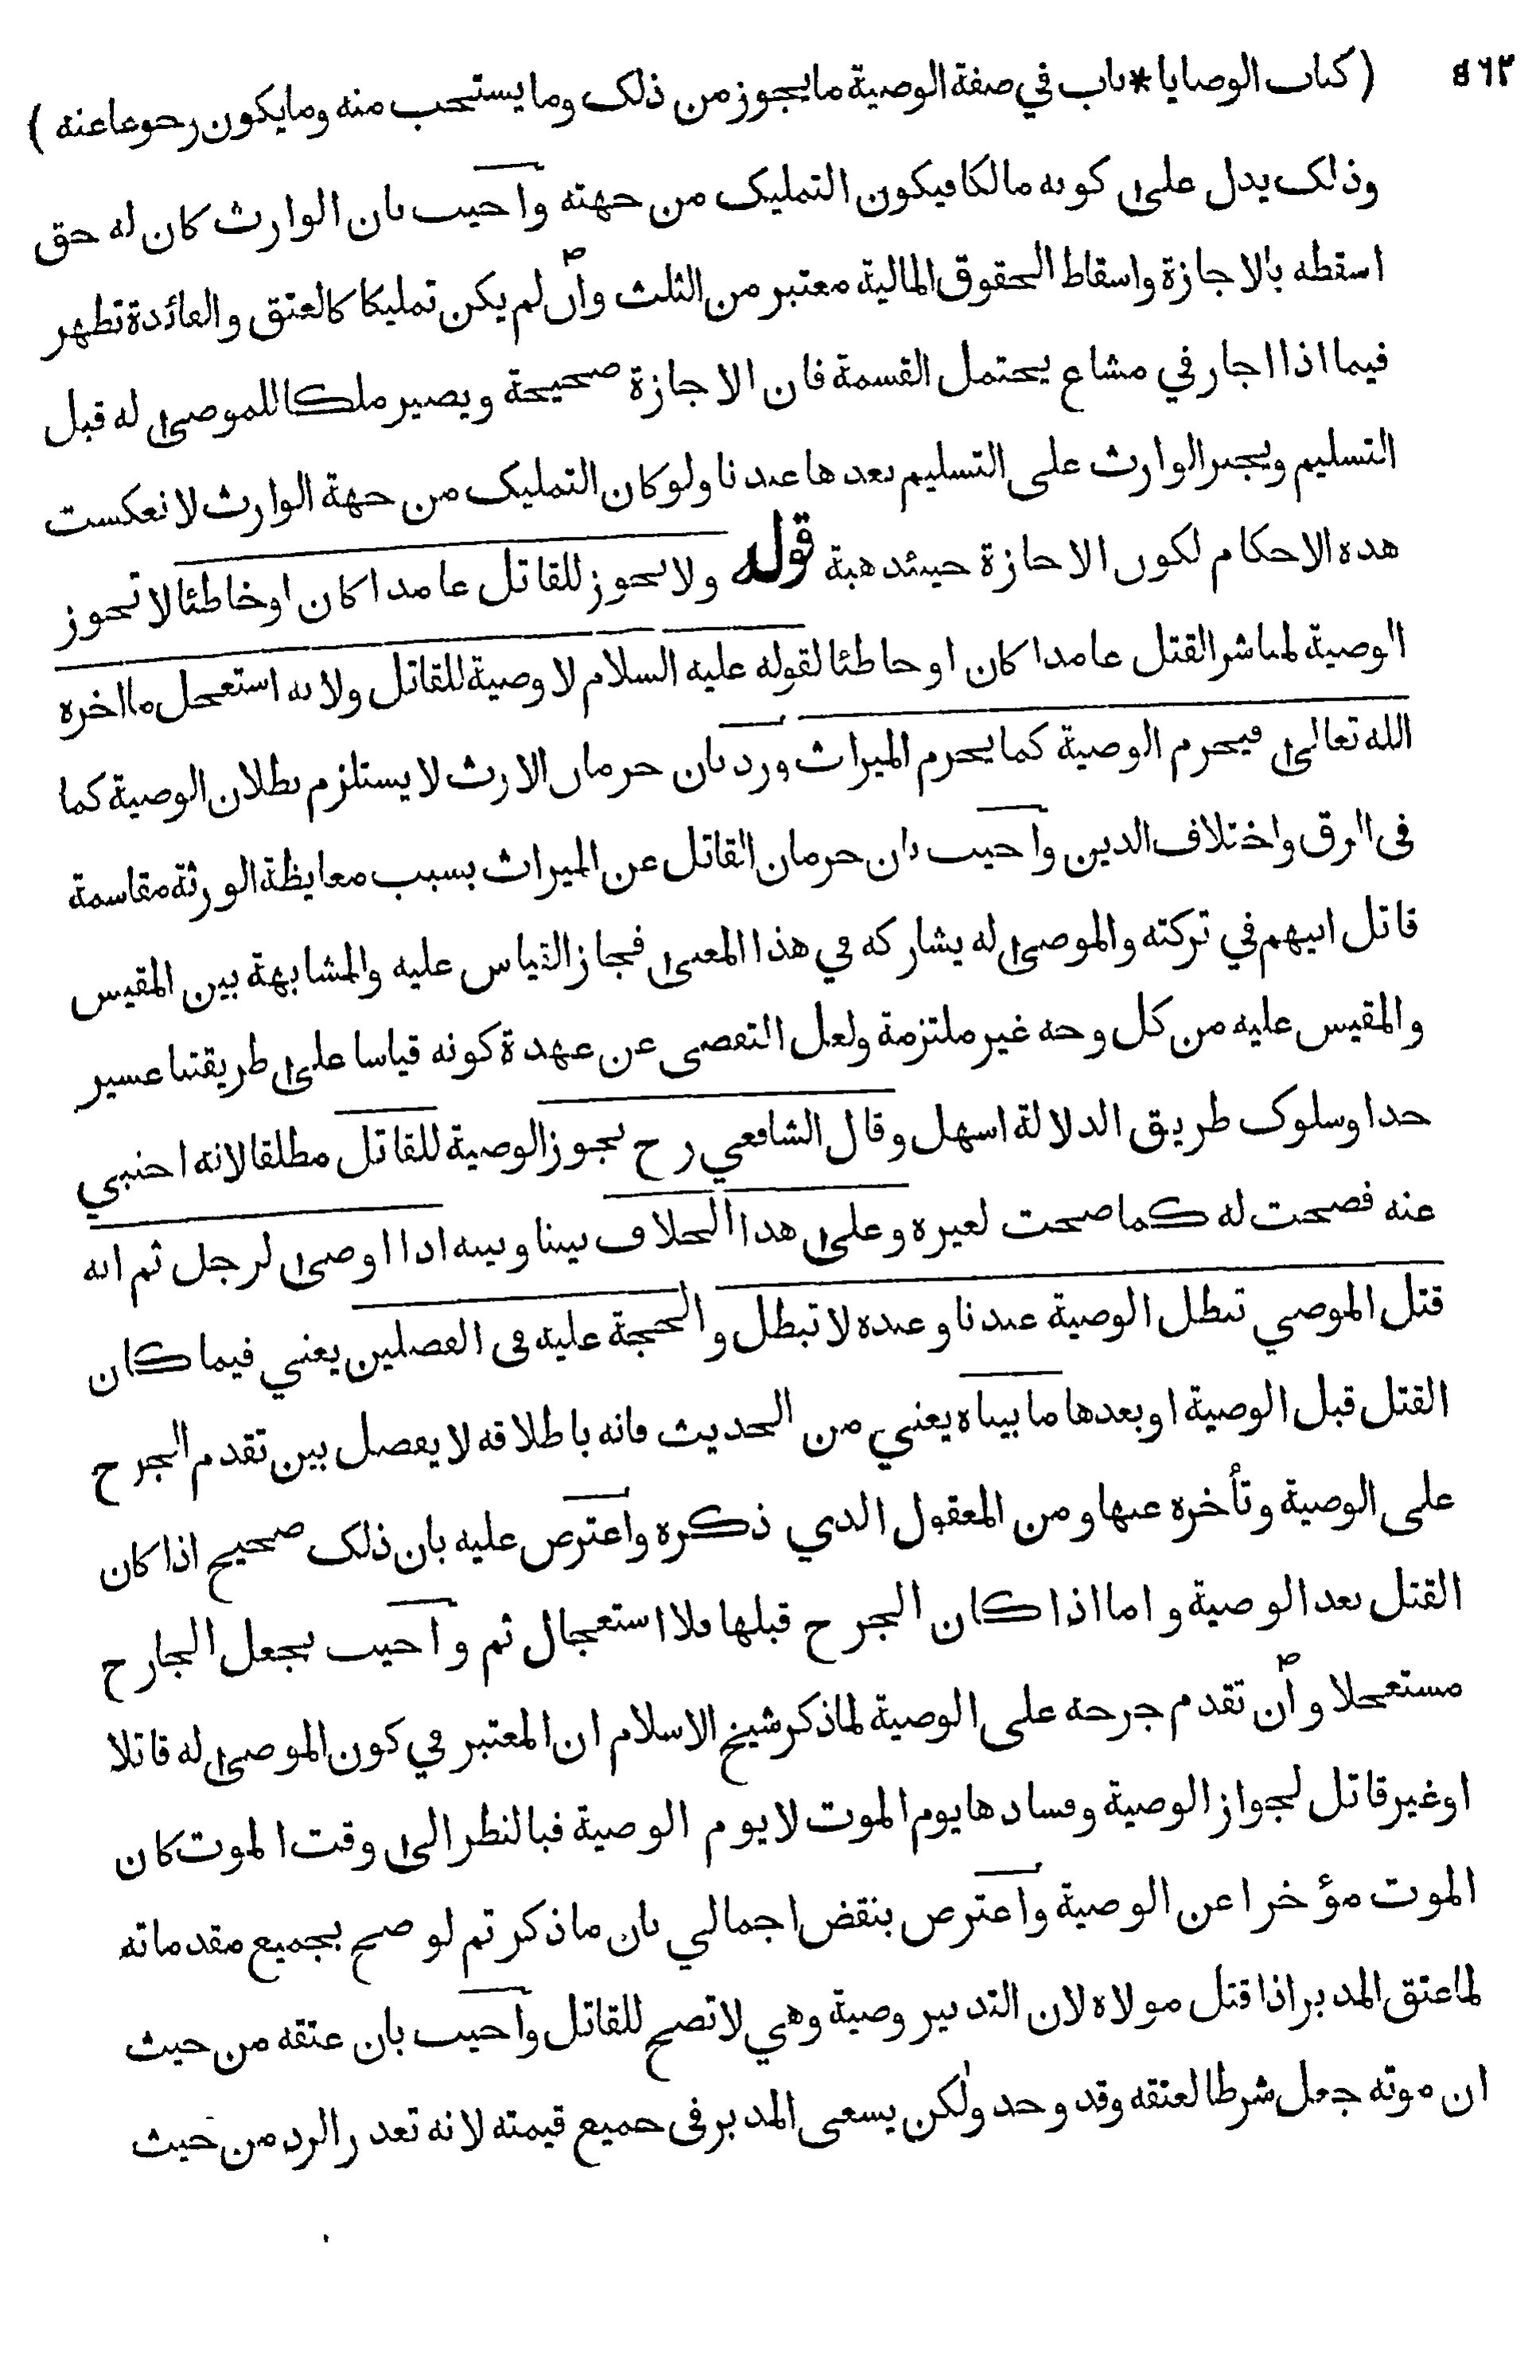 ٥٦٢ ( كتاب الوصايا * باب في صفة الوصية ما يجوز من ذلك وما يستحب منه وما يكون رجوعا عنه )
وذلك يدل على كونه مالكا فيكون التمليك من جهته واجيب بان الوارث كان له حق
اسقطه بالاجازة واسقاط الحقوق المالية معتبر من الثلث وان لم يكن تمليكا كالعتق والفائدة تظهر
فيما اذا اجاز في مشاع يحتمل القسمة فان الاجازة صحيحة ويصير ملكا للموصى له قبل
التسليم ويجبر الوارث على التسليم بعدها عندنا ولو كان التمليك من جهة الوارث لانعكست
هذه الاحكام لكون الاجازة حينئذ هبة قوله ولا يجوز للقاتل عامدا كان او خاطئا لا تجوز
الوصية لمباشر القتل عامدا كان او خاطئا لقوله عليه السلام لا وصية للقاتل ولانه استعجل ما اخره
الله تعالى فيحرم الوصية كما يحرم الميراث ورد بان حرمان الارث لا يستلزم بطلان الوصية كما
في الرق واختلاف الدين واجيب بان حرمان القاتل عن الميراث بسبب مغايظة الورثة مقاسمة
قاتل ابيهم في تركته والموصى له يشاركه في هذا المعنى فجاز القياس عليه والمشابهة بين المقيس
والمقيس عليه من كل وجه غير ملتزمة ولعل التفصي عن عهدة كونه قياسا على طريقتنا عسير
جدا وسلوك طريق الدلالة اسهل وقال الشافعي رح يجوز الوصية للقاتل مطلقا لانه اجنبي
عنه فصحت له كما صحت لغيره وعلى هذا الخلاف بيننا وبينه اذا اوصى لرجل ثم انه
قتل الموصي تبطل الوصية عندنا وعنده لا تبطل والحجة عليه في الفصلين يعني فيما كان
القتل قبل الوصية او بعدها ما بيناه يعني من الحديث فانه باطلاقه لا يفصل بين تقدم الجرح
على الوصية وتأخره عنها ومن المعقول الذي ذكره واعترض عليه بان ذلك صحيح اذا كان
القتل بعد الوصية واما اذا كان الجرح قبلها فلا استعجال ثم واجيب بجعل الجارح
مستعجلا وان تقدم جرحه على الوصية لما ذكر شيخ الاسلام ان المعتبر في كون الموصى له قاتلا
او غير قاتل لجواز الوصية وفسادها يوم الموت لا يوم الوصية فبالنظر الى وقت الموت كان
الموت مؤخرا عن الوصية واعترض بنقض اجمالي بان ما ذكرتم لو صح بجميع مقدماته
لما عتق المدبر اذا قتل مولاه لان التدبير وصية وهي لا تصح للقاتل واجيب بان عتقه من حيث
ان موته جعل شرطا لعتقه وقد وجد ولكن يسعى المدبر في جميع قيمته لانه تعذر الرد من حيث